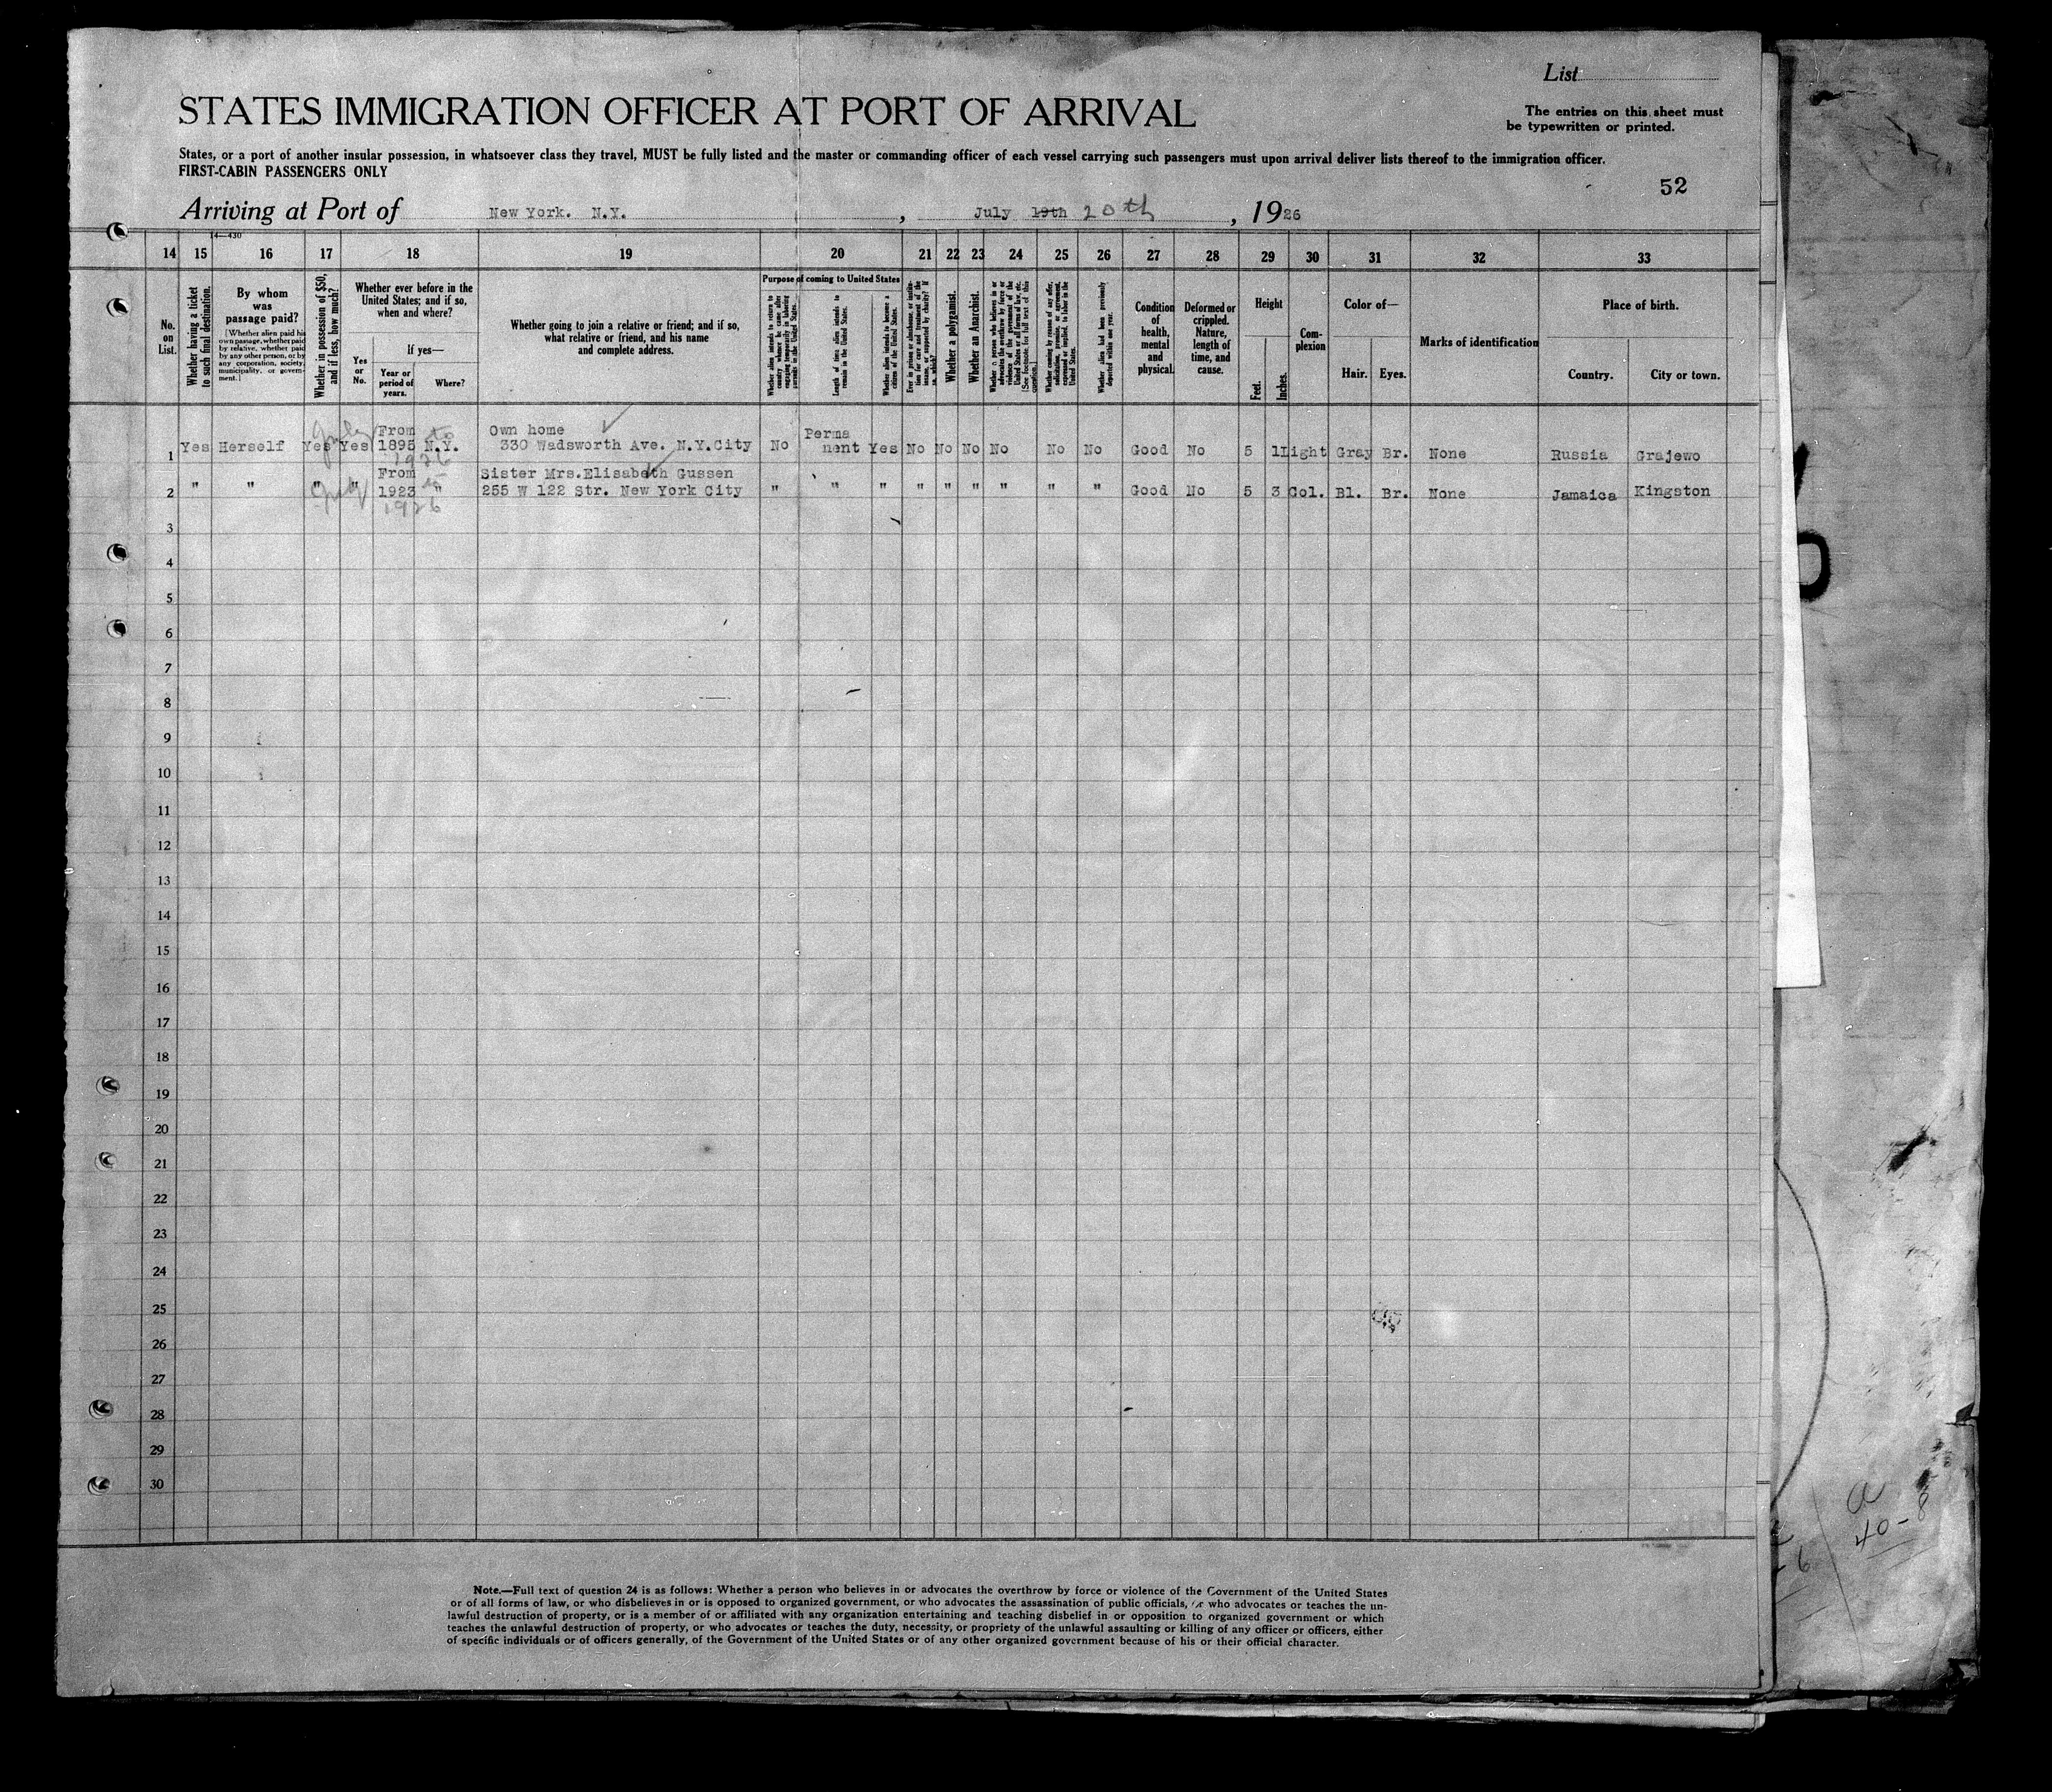 List
STATES IMMIGRATION OFFICER AT PORT OF ARRIVAL
The entries on this sheet must
be typewritten or printed.
States, or a port of another insular possession, in whatsoever class they travel, MUST be fully listed and the master or commanding officer of each vessel carrying such passengers must upon arrival deliver lists thereof to the immigration officer.
FIRST-CABIN PASSENGERS ONLY
52
Arriving at Port of New York. N.Y. , July 19th 20th , 1926.
14—430
14 15 16 17 18 19 20 21 22 23 24 25 26 27 28 29 30 31 32 33
No. on List.
Whether having a ticket to such final destination.
By whom was passage paid?
[Whether alien paid his own passage, whether paid by relative, whether paid by any other person, or by any corporation, society, municipality, or government.]
Whether in possession of $50, and if less, how much?
Whether ever before in the United States; and if so, when and where?
Yes or No.
If yes—
Year or period of years.
Where?
Whether going to join a relative or friend; and if so, what relative or friend, and his name and complete address.
Purpose of coming to United States
Whether alien intends to return to country whence he came after engaging temporarily in laboring pursuits in the United States.
Length of time alien intends to remain in the United States.
Whether alien intends to become a citizen of the United States.
Ever in prison or almshouse, or institution for care and treatment of the insane, or supported by charity? If so, which?
Whether a polygamist.
Whether an Anarchist.
Whether a person who believes in or advocates the overthrow by force or violence of the government of the United States or all forms of law, etc. [See footnote for full text of this question.]
Whether coming by reason of any offer, solicitation, promise, or agreement, expressed or implied, to labor in the United States.
Whether alien had been previously deported within one year.
Condition of health, mental and physical.
Deformed or crippled. Nature, length of time, and cause.
Height
Feet. Inches.
Complexion
Color of—
Hair. Eyes.
Marks of identification
Place of birth.
Country. City or town.
1 Yes Herself Yes Yes From 1895 to 1926 N.Y. Own home 330 Wadsworth Ave. N.Y.City No Permanent Yes No No No No No No Good No 5 1 Light Gray Br. None Russia Grajewo
2 " " " " From 1923 to 1926 " Sister Mrs.Elisabeth Gussen 255 W 122 Str. New York City " " " " " " " " " Good No 5 3 Col. Bl. Br. None Jamaica Kingston
3
4
5
6
7
8
9
10
11
12
13
14
15
16
17
18
19
20
21
22
23
24
25
26
27
28
29
30
a
40-8
6
Note.—Full text of question 24 is as follows: Whether a person who believes in or advocates the overthrow by force or violence of the Government of the United States
or of all forms of law, or who disbelieves in or is opposed to organized government, or who advocates the assassination of public officials, or who advocates or teaches the un-
lawful destruction of property, or is a member of or affiliated with any organization entertaining and teaching disbelief in or opposition to organized government or which
teaches the unlawful destruction of property, or who advocates or teaches the duty, necessity, or propriety of the unlawful assaulting or killing of any officer or officers, either
of specific individuals or of officers generally, of the Government of the United States or of any other organized government because of his or their official character.